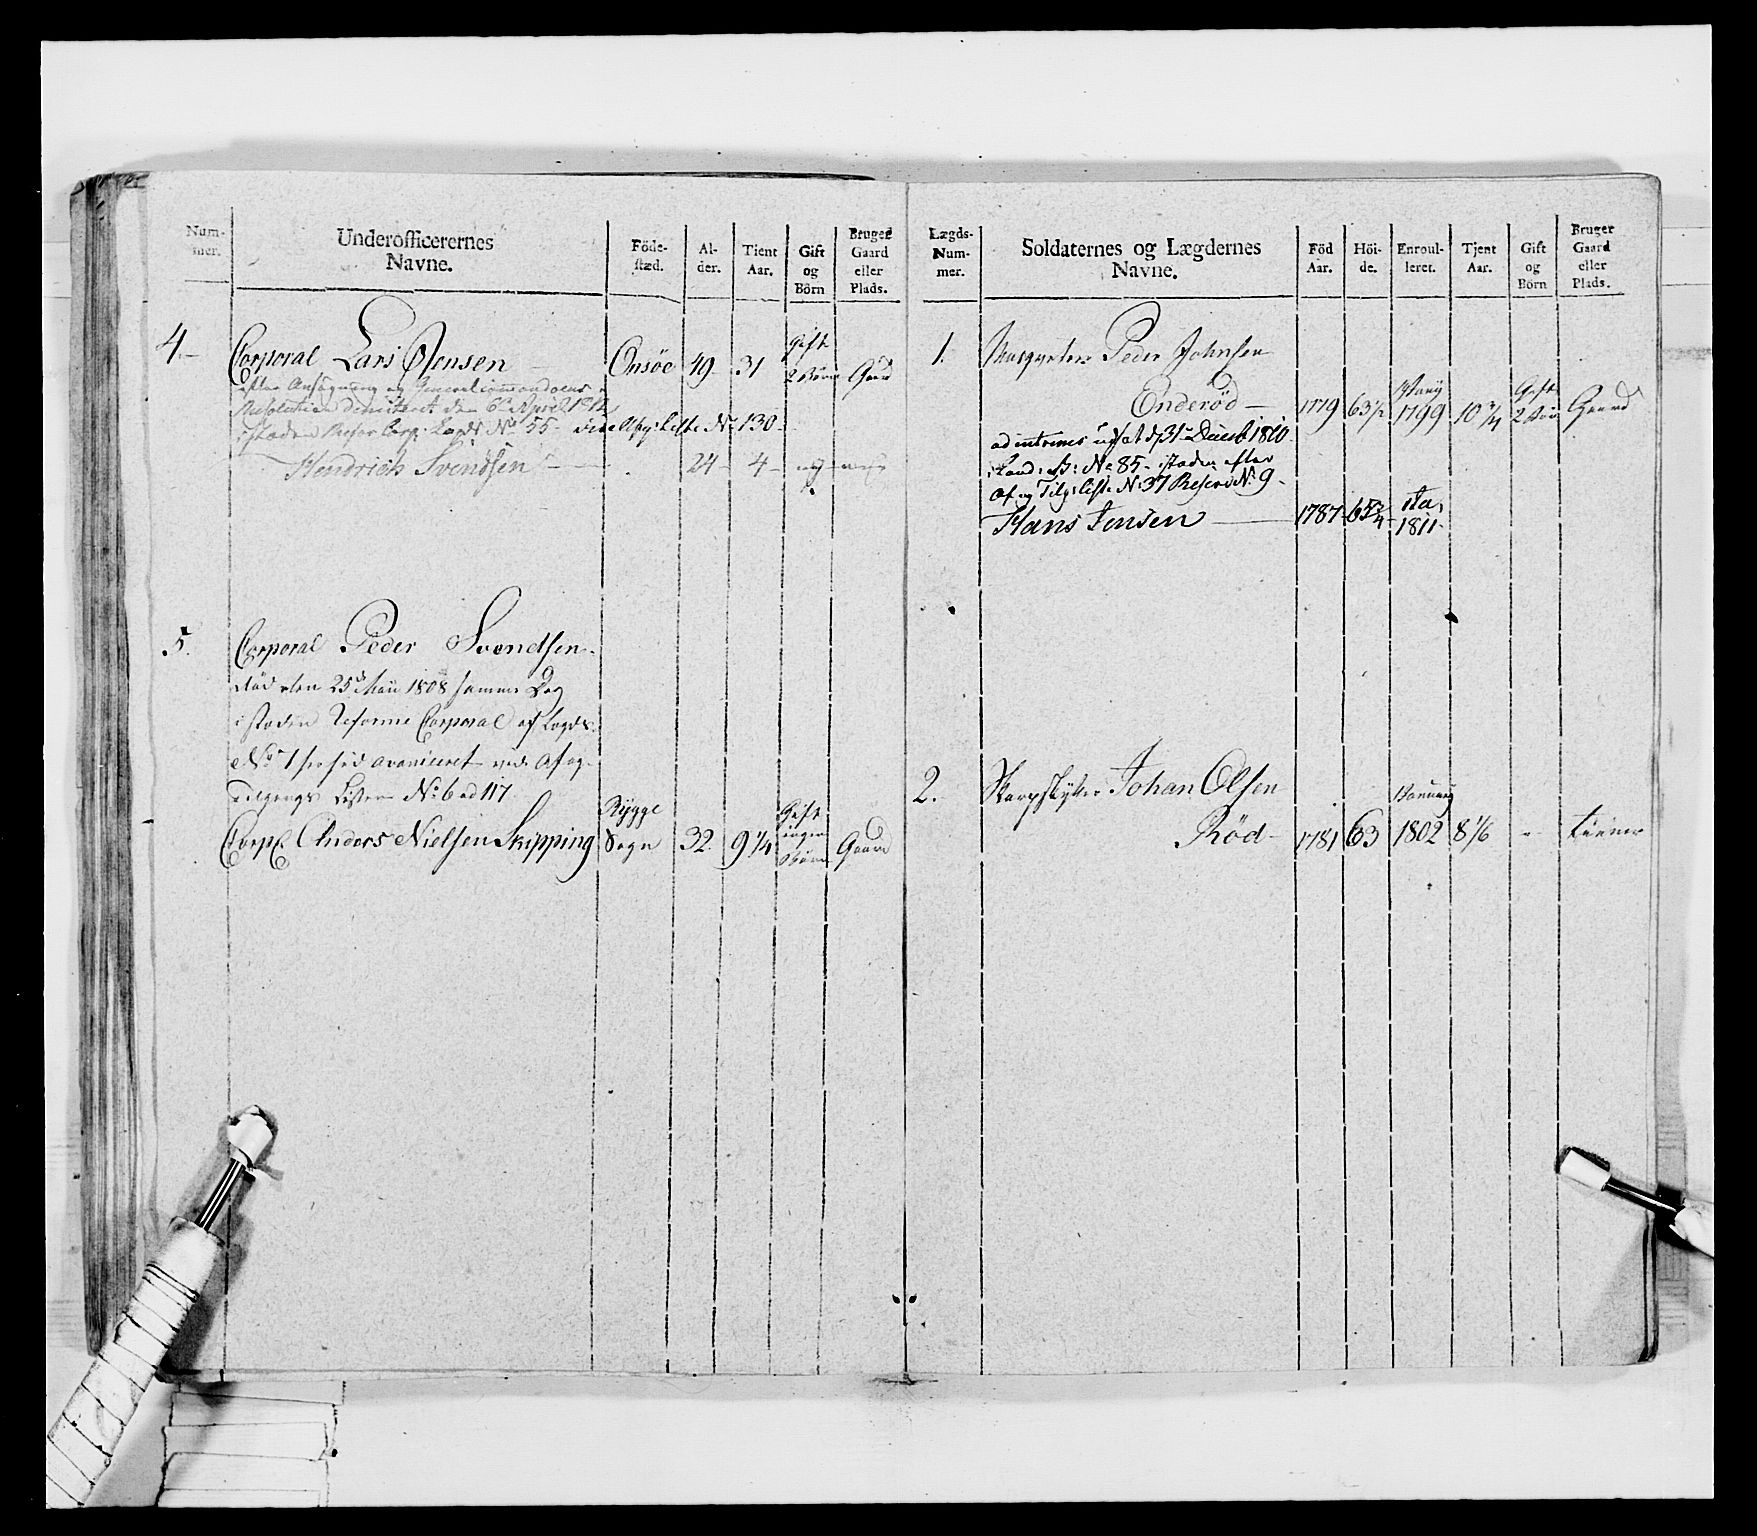 Num-
mer.
Underofficerernes
Navne.
Föde-
stæd.
Al-
der.
Tient
Aar.
Gift
og
Börn
Bruger
Gaard
eller
Plads.
4.
Corporal Lars Jensen Onsöe 49 31 Gift 2 Börn Gaard
efter Ansögning og Generalcommandoens
Resolution demitteret den 6te April 1812
istæden Reser Corp: Lægd No 55 vide Afg: Liste No 130
Hendrich Svendsen 24 4
5.
Corporal Peder Svendsen
död den 25d Maii 1808 samme Dag
istæden Corporal af Lægds
No 1 avanceret vide Af og
Tilgangs Listen No 6 ad 117
Corpl Anders Nielsen Skipping Rygge Sogn 32 9 1/4 Gift ingen Börn Gaard
Lægds-
Num-
mer.
Soldaternes og Lægdernes
Navne.
Föd
Aar.
Höi-
de.
Enroul-
leret.
Tjent
Aar.
Gift
og
Börn
Bruger
Gaard
eller
Plads.
1.
Musqueteer Peder Johnsen
Enderöd 1779 63 1/2 1799 10 3/4 Gift 2 Börn Gaard
ad interims udsat d 31 Decemb 1810
No 85 istæden efter
Af og Tilg: Liste No 37 Reserve No 9
Hans Jensen 1787 65 3/4 1811
2.
Skarpskytter Johan Olsen
Röd 1781 63 Januarij 1802 8 1/6 - tiener